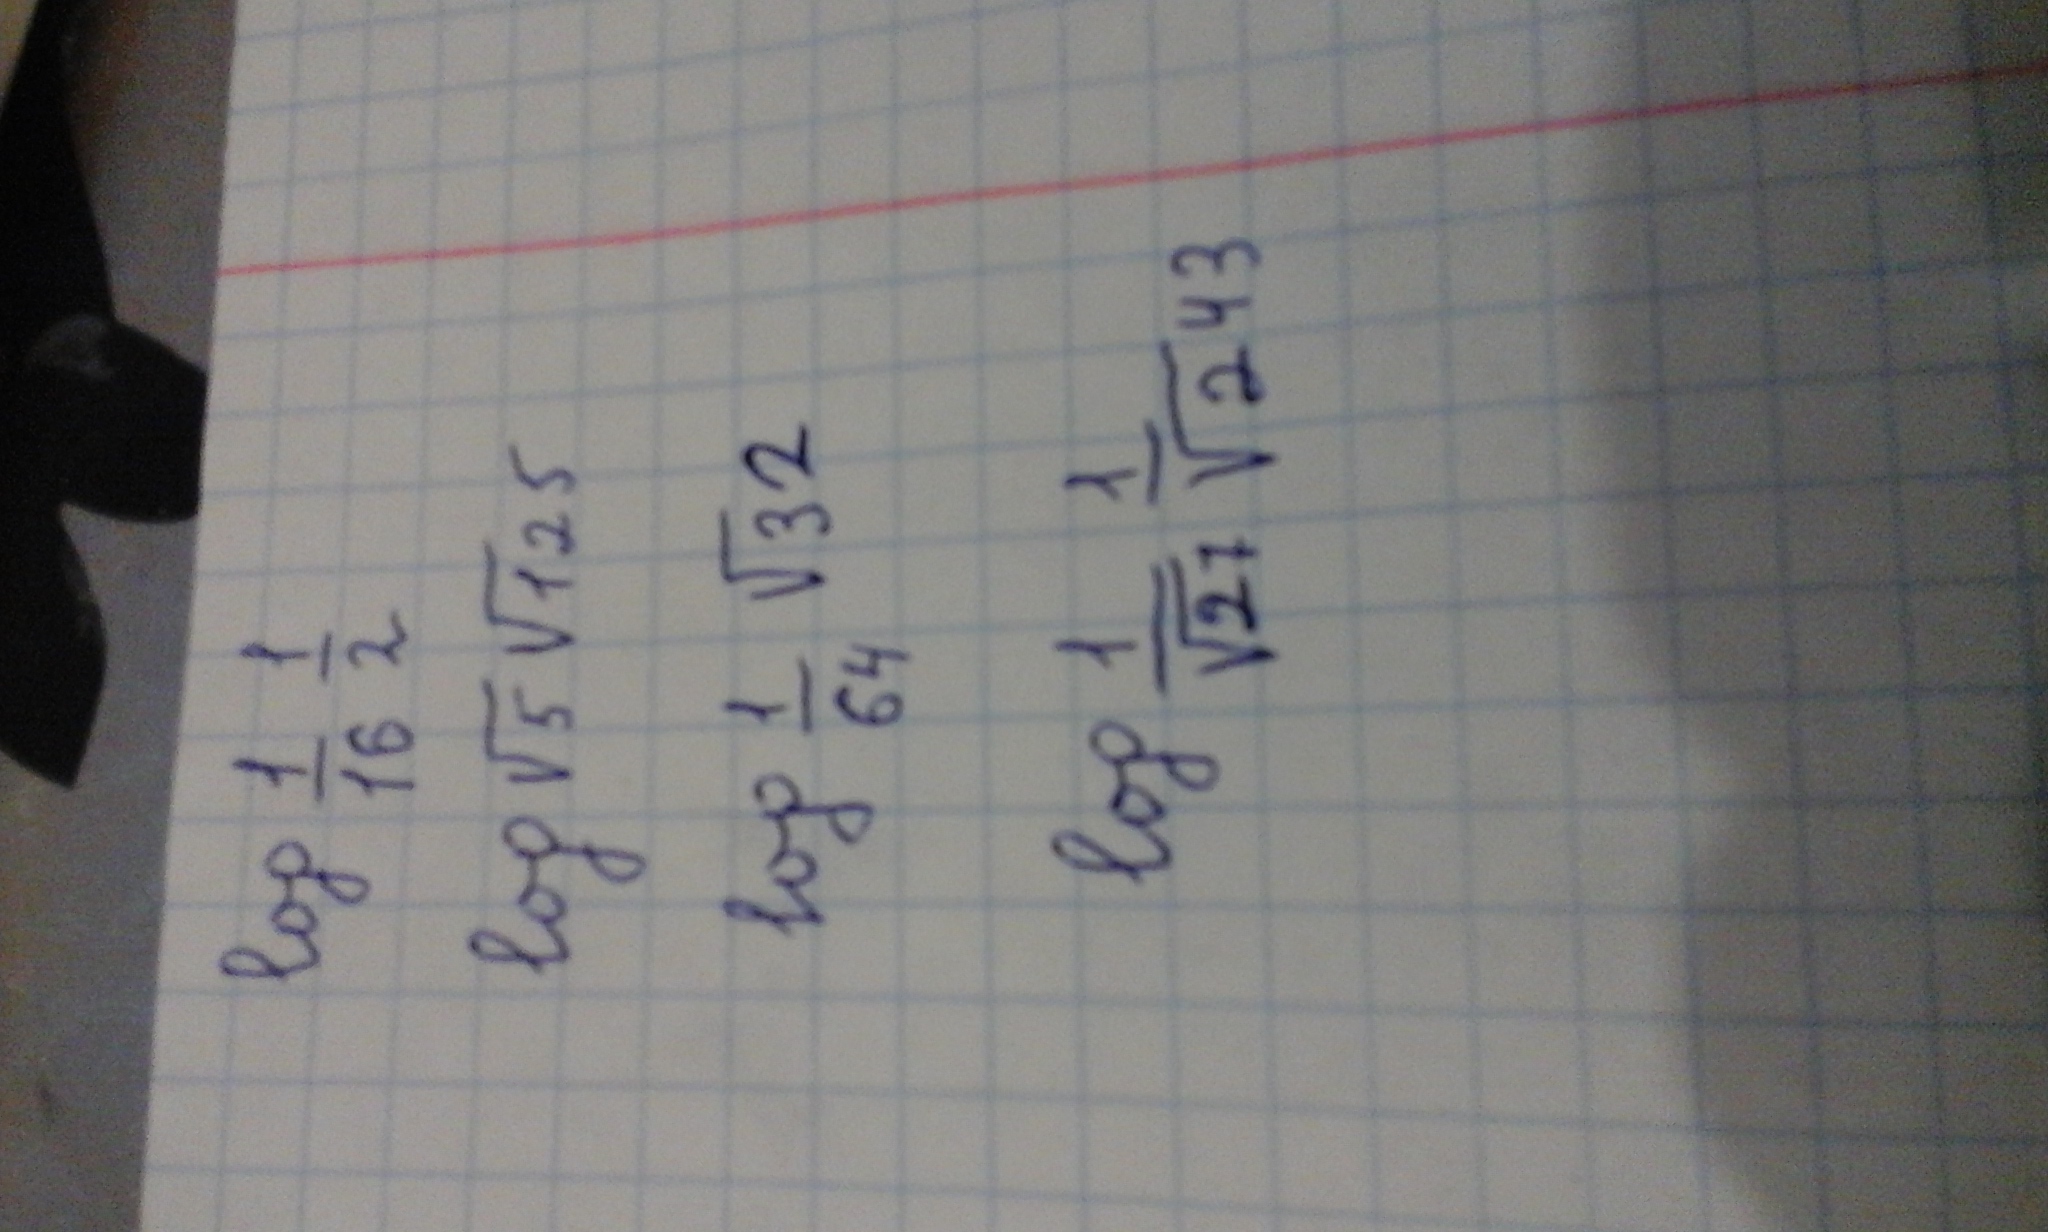 log 1/16 1/2
log √5 √125
log 1/64 √32
log 1/√27 1/√243